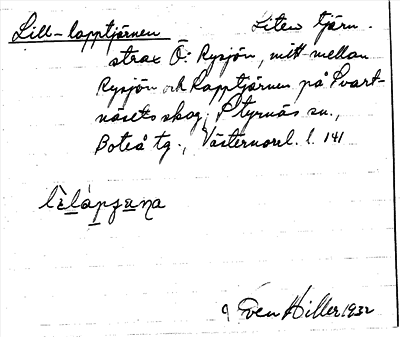 Lill-lapptjärnen Liten tjärn
strax Ö: Rysjön, mitt mellan
Rysjön och Lapptjärnen på Svart-
näsets skog. Styrnäs sn.,
Boteå tg., Västernorrl. l. 141
Sven Hiller 1932